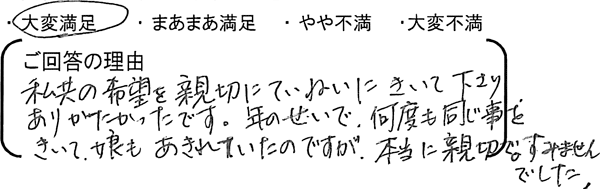 ・大変満足 ・まあまあ満足 ・やや不満 ・大変不満
ご回答の理由
私共の希望を親切にていねいにきいて下さり
ありがたかったです。年のせいで、何度も同じ事を
きいて、娘もあきれていたのですが、本当に親切で、すみません
でした。